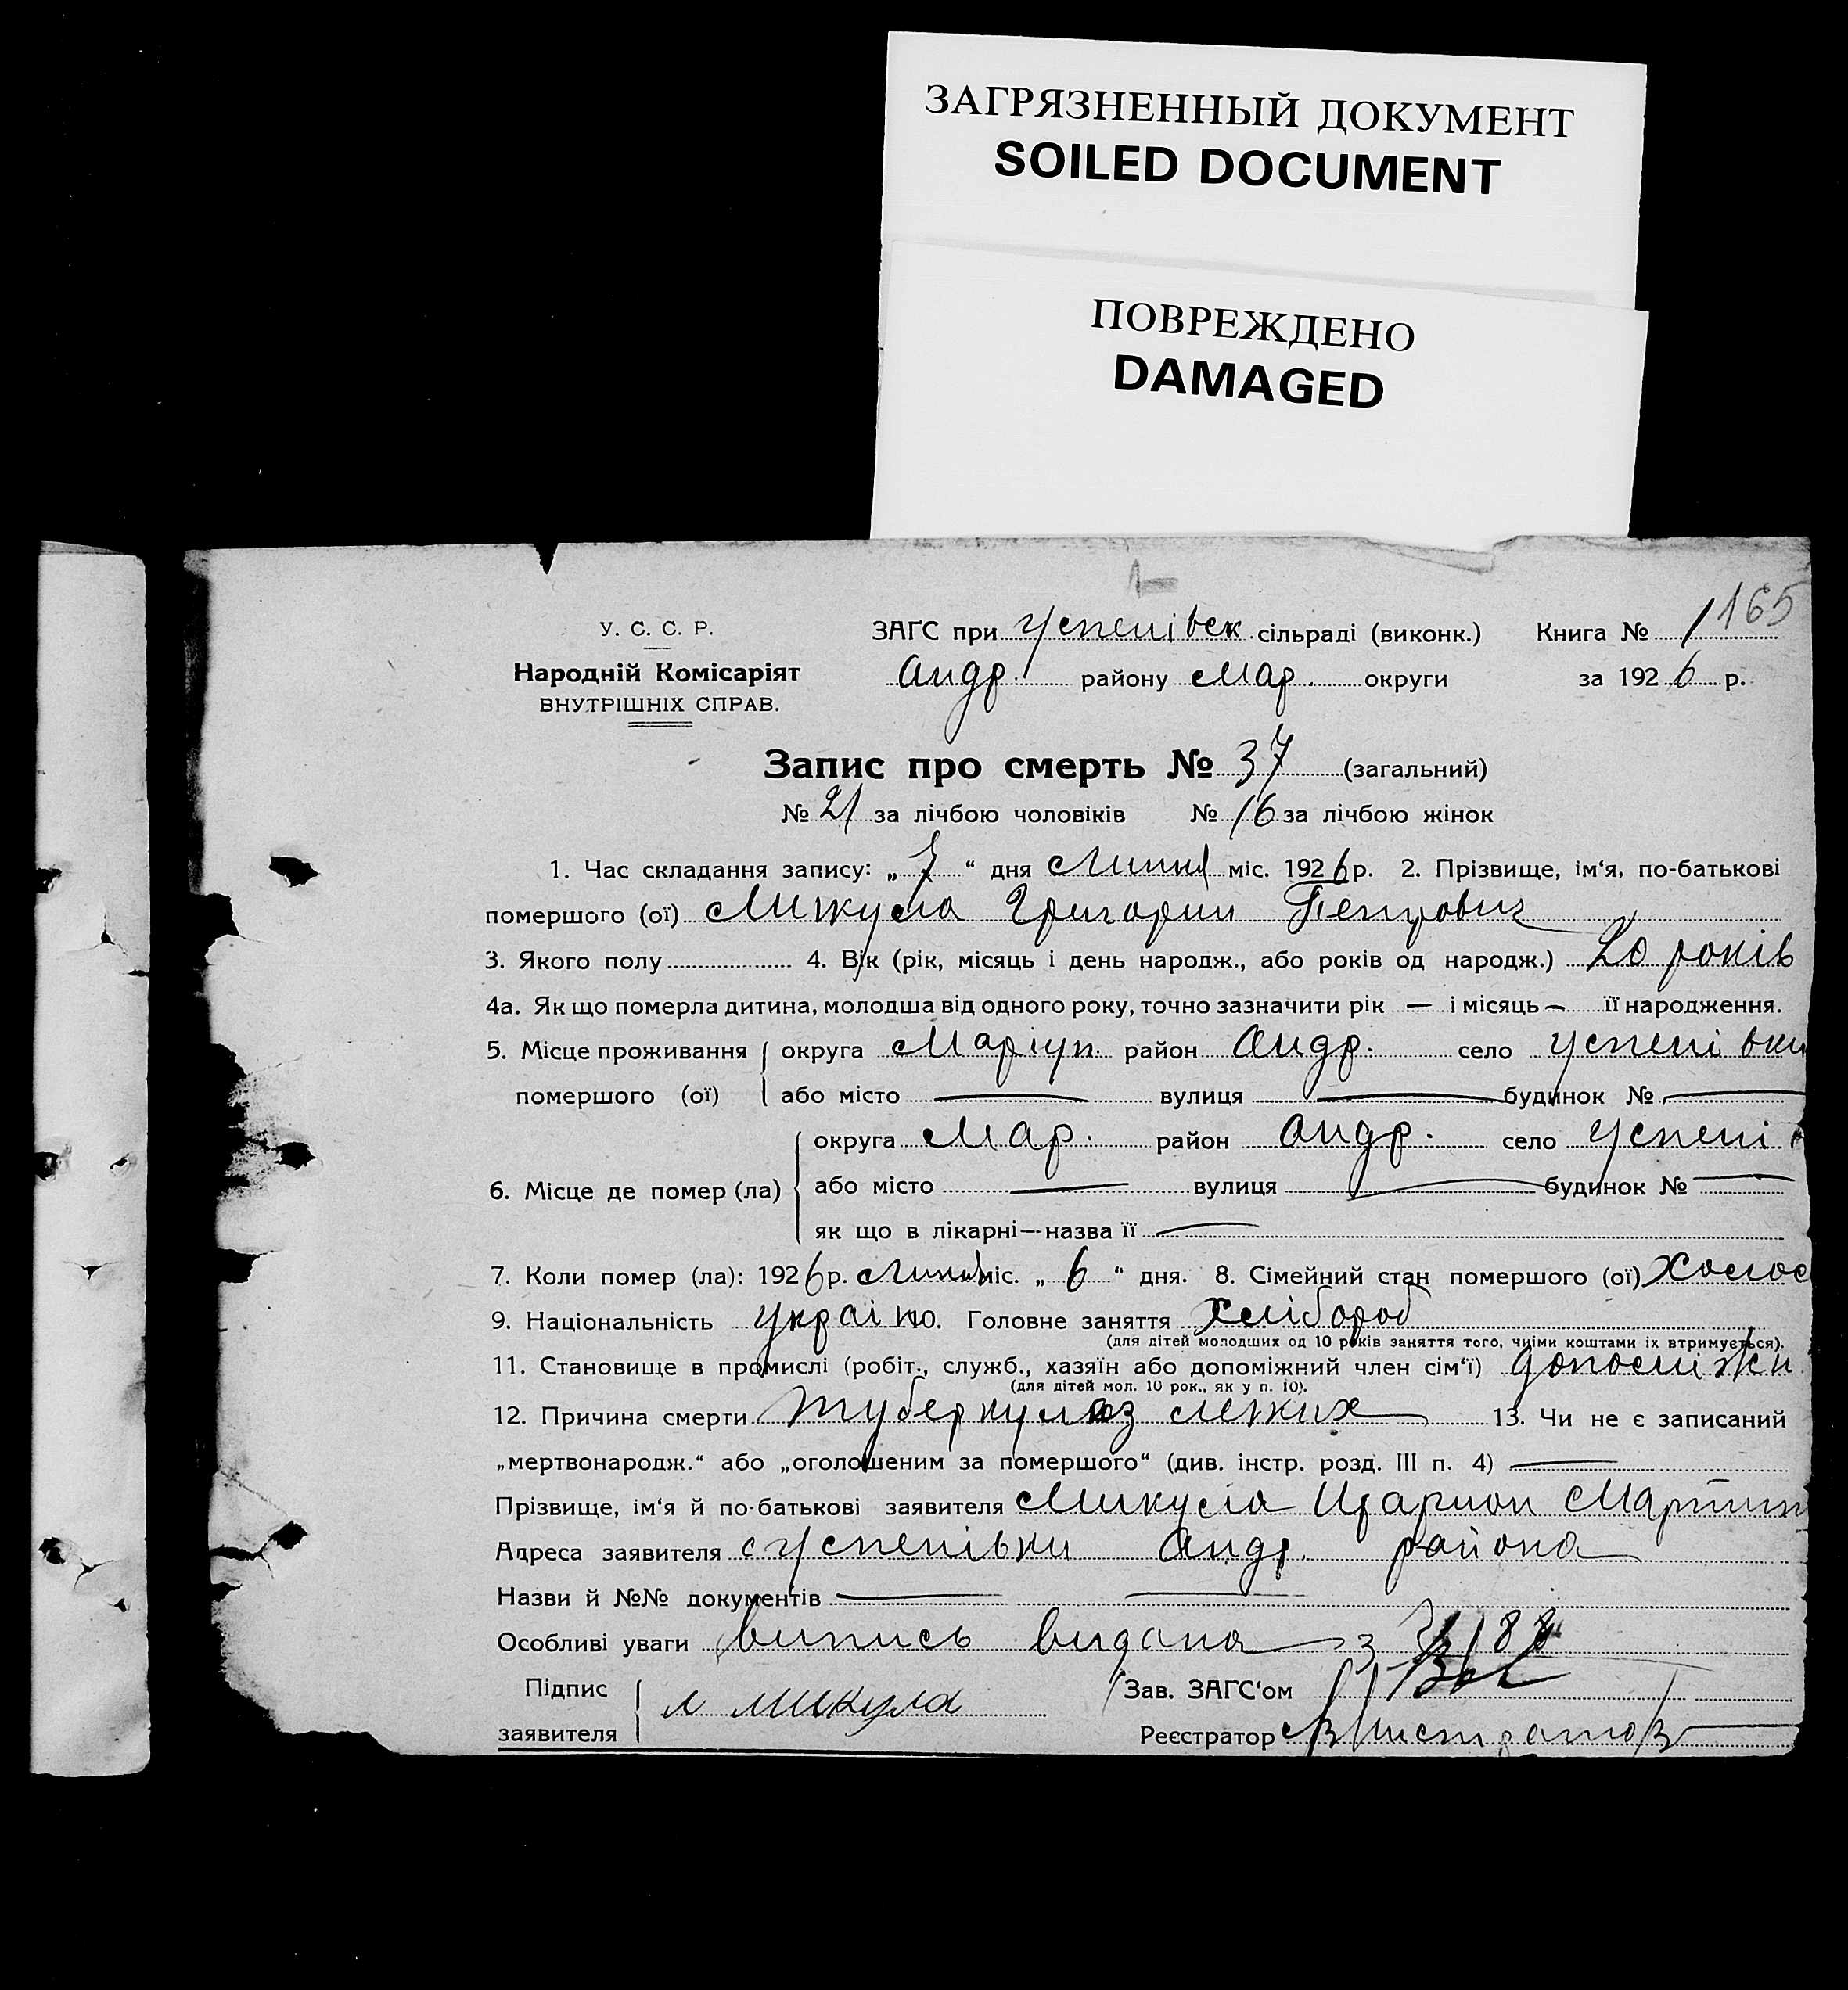 ЗАГРЯЗНЕННЫЙ ДОКУМЕНТ
SOILED DOCUMENT
ПОВРЕЖДЕНО
DAMAGED
165
У. С. С. Р.
Народній Комісаріят
ВНУТРІШНІХ СПРАВ.
ЗАҐС при Успенівск сільраді (виконк.) Книга № 1
Андр. району Мар. округи за 1926 р.
Запис про смерть № 37 (загальний)
№ 21 за лічбою чоловіків № 16 за лічбою жінок
1. Час складання запису: „ 7 “ дня Липня міс. 1926 р. 2. Прізвище, ім‘я, по-батькові
помершого (ої) Микула Григорий Петрович
3. Якого полу 4. Вік (рік, місяць і день народж., або років од народж.) 20 років
4а. Як що померла дитина, молодша від одного року, точно зазначити рік — і місяць — її народження.
5. Місце проживання округа Маріуп. район Андр. село Успенівки
помершого (ої) або місто — вулиця — будинок № —
округа Мар. район Андр. село Успені
6. Місце де помер (ла) або місто — вулиця — будинок № —
як що в лікарні—назва її —
7. Коли помер (ла): 1926 р. Липня міс. „ 6 “ дня. 8. Сімейний стан помершого (ої) Холос
9. Національність україн 10. Головне заняття хлібороб
(для дітей молодших од 10 років заняття того, чиїми коштами їх втримується).
11. Становище в промислі (робіт., служб., хазяїн або допоміжний член сім‘ї) допоміжн
(для дітей мол. 10 рок., як у п. 10).
12. Причина смерти туберкулоз легких 13. Чи не є записаний
„мертвонародж.“ або „оголошеним за помершого“ (див. інстр. розд. III п. 4) —
Прізвище, ім‘я й по-батькові заявителя Микула Мартин
Адреса заявителя с Успенівки Андр. района
Назви й №№ документів — —
Особливі уваги випись видана з
Підпис
заявителя Микула
Зав. ЗАҐС‘ом
Реєстратор